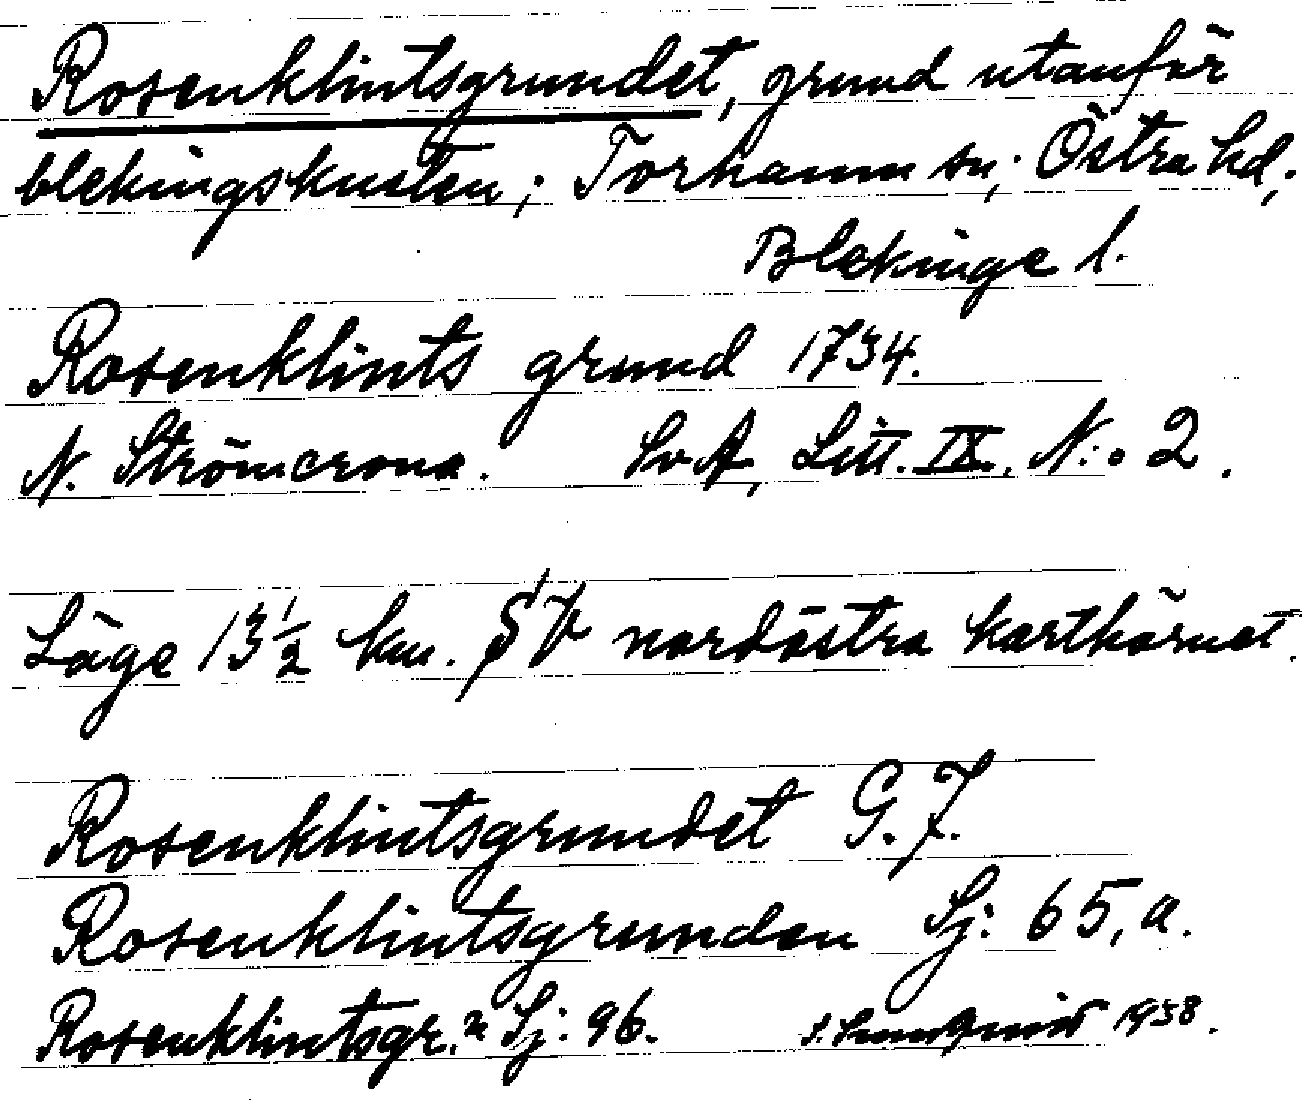 Rosenklintsgrundet, grund utanför
blekingskusten; Torhamn sn; Östra hd,.
Blekinge l.
Rosenklints grund 1734.
N. Strömcrona. SvA, Litt. IX. N:o 2.
Läge 13½ km. SV nordöstra karthörnet.
Rosenklintsgrundet G.F.
Rosenklintsgrunden Sj: 65, a.
Rosenklintsgr.n Sj: 96. 1938.